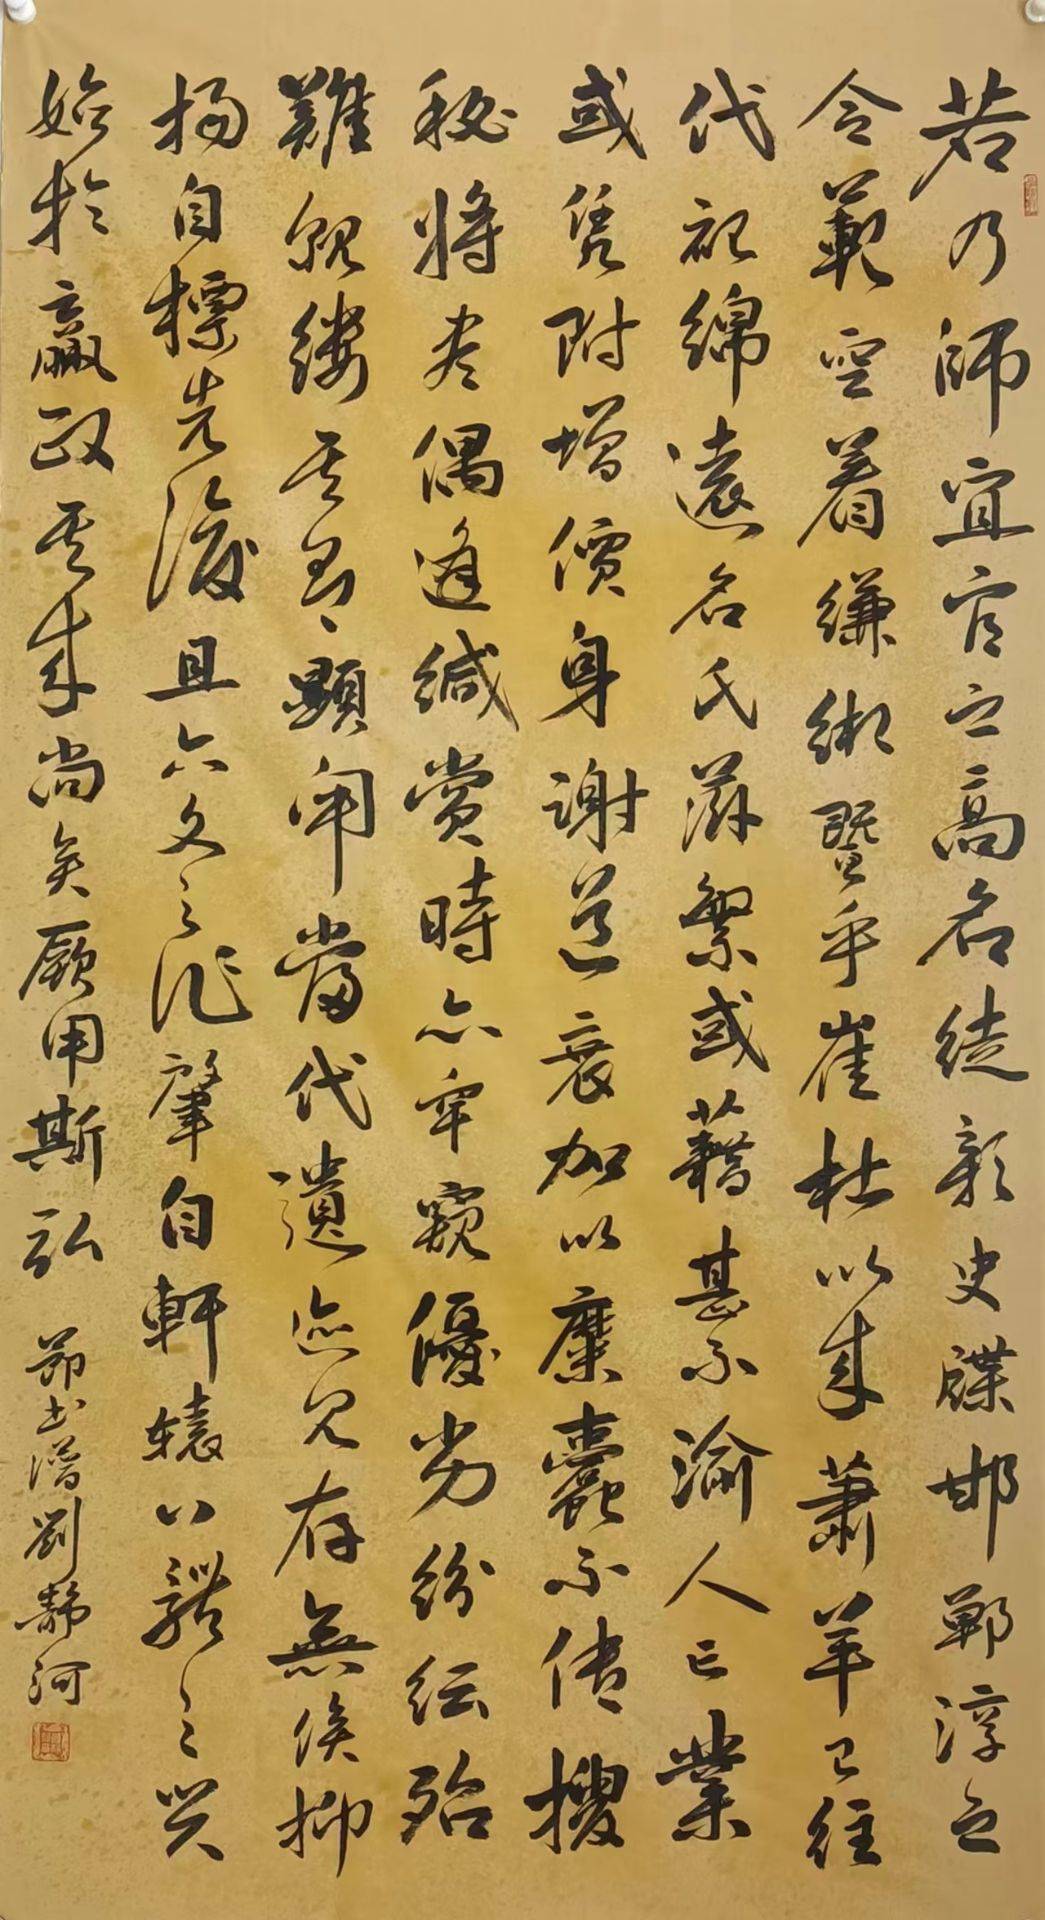 若乃師宜官之高名徒彰史牒邯鄲淳之
令範空着縑緗暨乎崔杜以来蕭羊已往
代祀綿遠名氏滋繁或藉甚不渝人亡業
或凭附增價身謝道衰加以糜蠹不传搜
秘将盡偶逢缄賞時亦罕窺優劣纷纭殆
難覼缕其有顯闻當代遺迹見存無俟抑
揚自標先後且六文之作肇自軒辕八體之興
始於嬴政其来尚矣厥用斯弘 節書譜劉静河